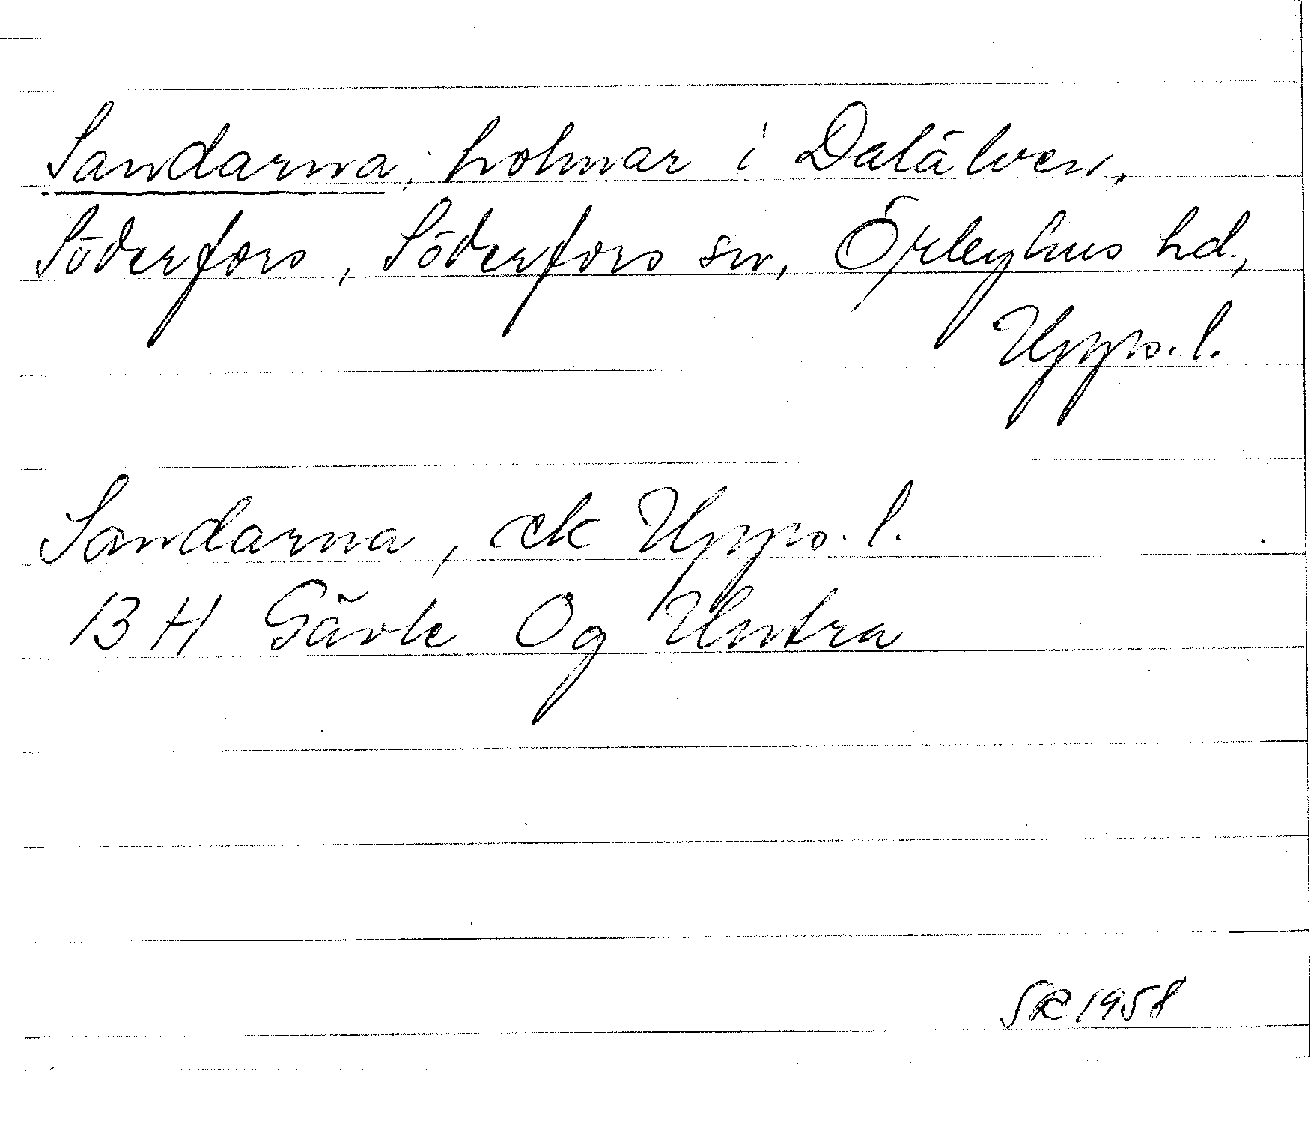 Sandarna, holmar i Dalälven,
Söderfors, Söderfors sn, Örbyhus hd,
Upps. l.
Sandarna, ek Upps. l.
13 H Gävle Og Untra
SR 1958